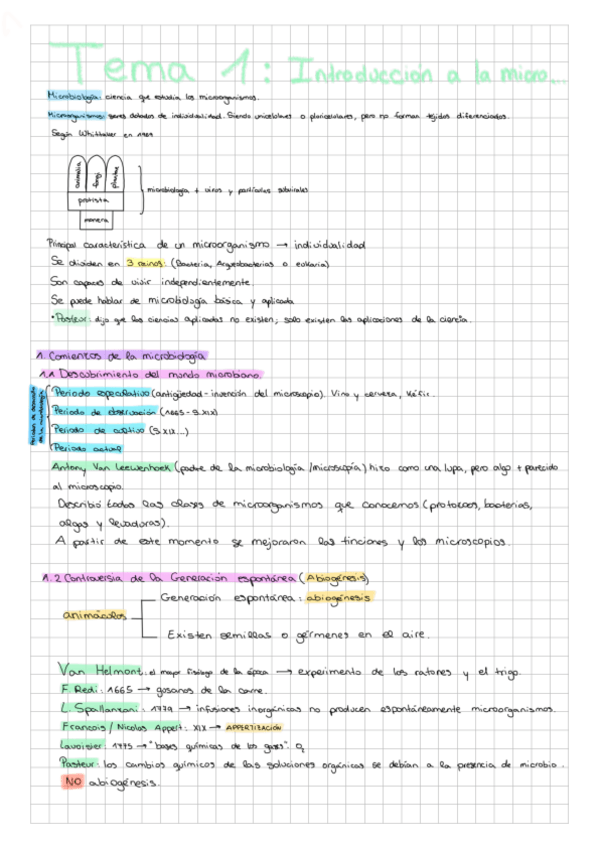 Tema 1: Introducción a la micro...
Microbiología: ciencia que estudia los microorganismos.
Microorganismos: seres dotados de individualidad. Siendo unicelulares o pluricelulares, pero no forman tejidos diferenciados.
Según Whittaker en 1969
animalia
fungi
plantae
protista
monera
microbiología + virus y partículas subvirales
Principal característica de un microorganismo → individualidad
Se dividen en 3 reinos: (Bacteria, Arqueobacterias o eukaria)
Son capaces de vivir independientemente.
Se puede hablar de microbiología básica y aplicada
• Pasteur: dijo que las ciencias aplicadas no existen, solo existen las aplicaciones de la ciencia.
1. Comienzos de la microbiología
1.1 Descubrimiento del mundo microbiano.
Periodo especulativo (antigüedad - invención del microscopio). Vino y cerveza, Kéfir.
Periodo de observación (1665 - S.XIX)
Periodo de cultivo (S.XIX...)
Periodo actual
Antony Van Leewenhoek (padre de la microbiología / microscopía) hizo como una lupa, pero algo + parecido
al microscopio.
Describió todas las clases de microorganismos que conocemos (protozoos, bacterias,
algas y levaduras).
A partir de este momento se mejoraron las tinciones y los microscopios.
1.2 Controversia de la Generación espontánea (Abiogénesis)
Generación espontánea: abiogénesis
animáculos
Existen semillas o gérmenes en el aire.
Van Helmont: el mayor fisiólogo de la época → experimento de los ratones y el trigo.
F. Redi: 1665 → gusanos de la carne.
L. Spallanzani: 1779 → infusiones inorgánicas no producen espontáneamente microorganismos.
Francois / Nicolas Appert: XIX → APPERTIZACIÓN
Lavoisier: 1775 → "bases químicas de los gases". O₂
Pasteur: los cambios químicos de las soluciones orgánicas se debían a la presencia de microbio.
NO abiogénesis.